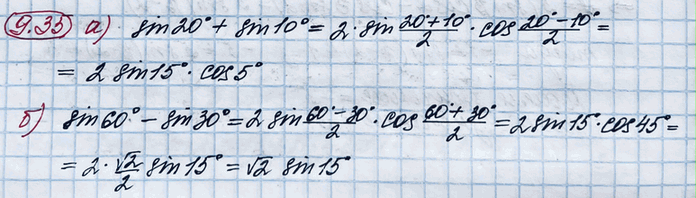 9.35 а) sin20° + sin10° = 2·sin (20°+10°)/2 · cos (20°−10°)/2 =
= 2 sin15°·cos5°
б) sin60° − sin30° = 2 sin (60°−30°)/2 · cos (60°+30°)/2 = 2 sin15°·cos45° =
= 2·√2/2 sin15° = √2 sin15°